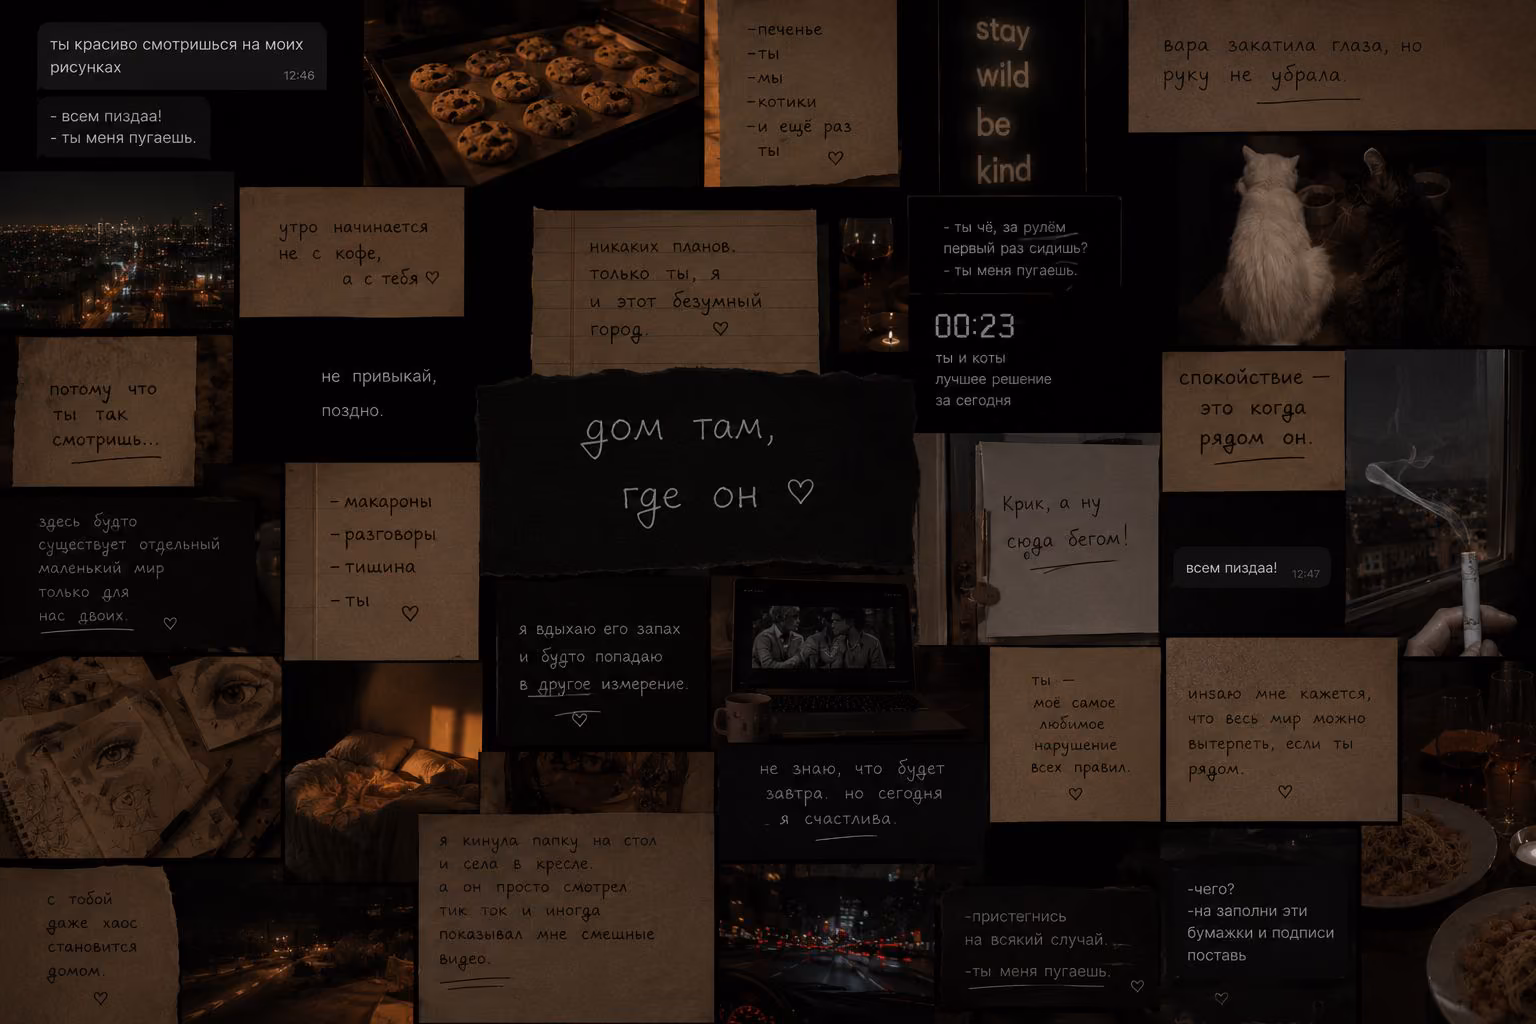 ты красиво смотришься на моих
рисунках
12:46
- всем пиздаа!
- ты меня пугаешь.
-печенье
-ты
-мы
-котики
-и ещё раз
ты ♡
stay
wild
be
kind
вара закатила глаза, но
руку не убрала.
утро начинается
не с кофе,
а с тебя ♡
никаких планов.
только ты, я
и этот безумный
город. ♡
- ты чё, за рулём
первый раз сидишь?
- ты меня пугаешь.
00:23
ты и коты
лучшее решение
за сегодня
потому что
ты так
смотришь...
не привыкай,
поздно.
дом там,
где он ♡
спокойствие —
это когда
рядом он.
здесь будто
существует отдельный
маленький мир
только для
нас двоих. ♡
- макароны
- разговоры
- тишина
- ты ♡
Крик, а ну
сюда бегом!
всем пиздаа!
12:47
я вдыхаю его запах
и будто попадаю
в другое измерение.
♡
ты —
моё самое
любимое
нарушение
всех правил.
♡
инsаю мне кажется,
что весь мир можно
вытерпеть, если ты
рядом.
♡
не знаю, что будет
завтра. но сегодня
я счастлива.
я кинула папку на стол
и села в кресле.
а он просто смотрел
тик ток и иногда
показывал мне смешные
видео.
с тобой
даже хаос
становится
домом.
♡
-пристегнись
на всякий случай.
-ты меня пугаешь.
♡
-чего?
-на заполни эти
бумажки и подписи
поставь
♡